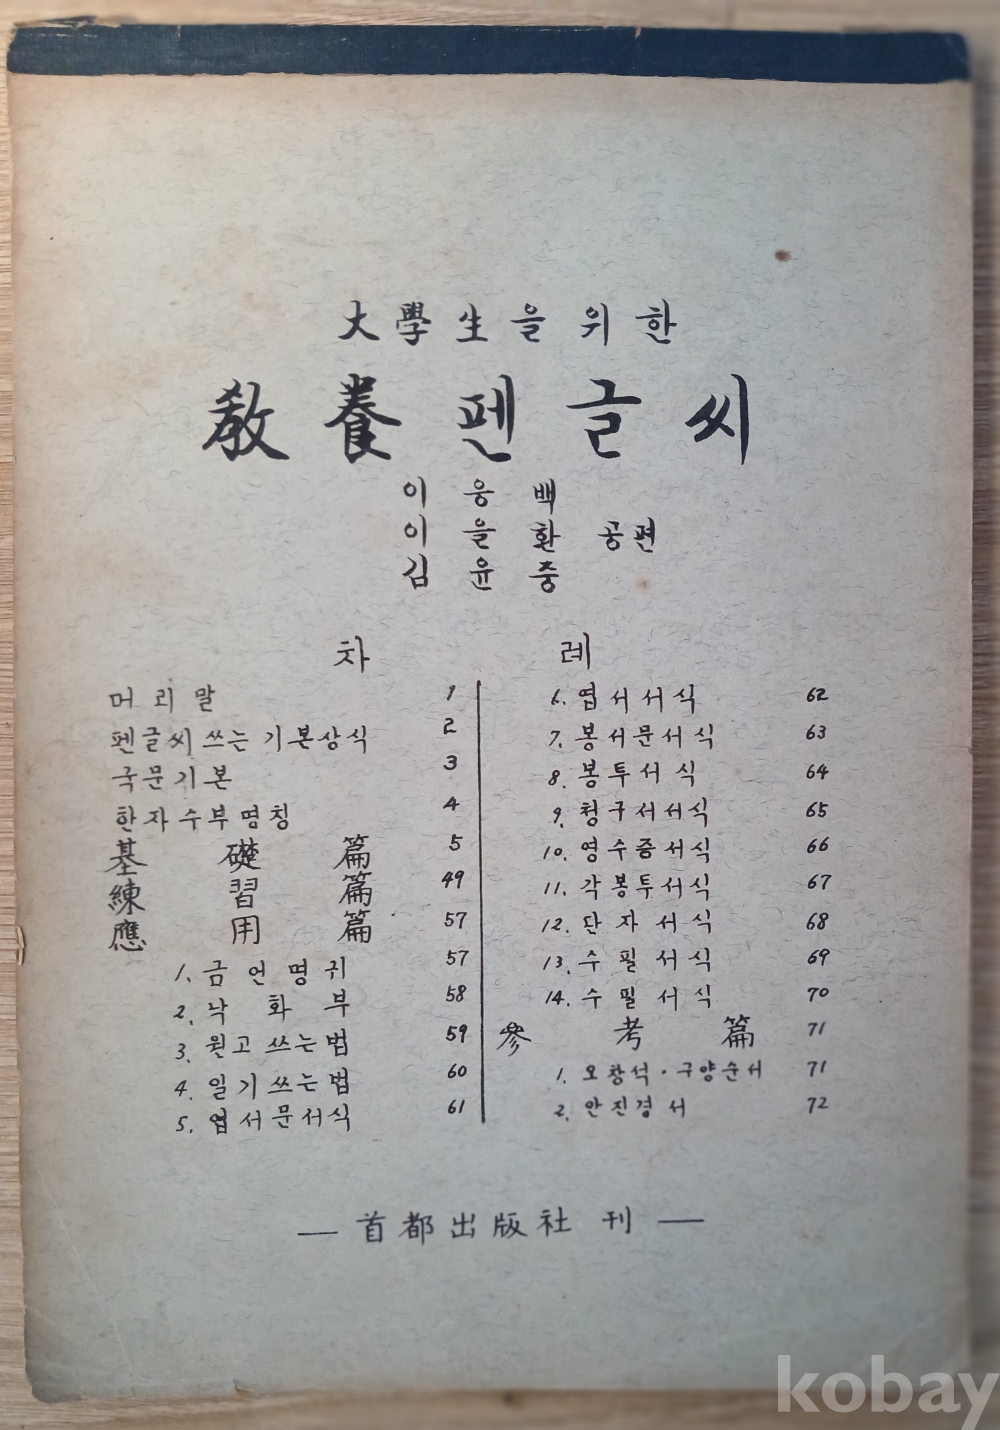 大學生을 위한
敎養펜글씨
이웅백
이을환 공편
김윤중
차례
머리말 1
펜글씨 쓰는 기본상식 2
국문기본 3
한자수부명칭 4
基礎篇 5
練習篇 49
應用篇 57
1. 금언명귀 57
2. 낙화부 58
3. 원고 쓰는 법 59
4. 일기 쓰는 법 60
5. 엽서문서식 61
6. 엽서서식 62
7. 봉서문서식 63
8. 봉투서식 64
9. 청구서서식 65
10. 영수증서식 66
11. 각봉투서식 67
12. 단자서식 68
13. 수필서식 69
14. 수필서식 70
參考篇 71
1. 오창석·구양순서 71
2. 안진경서 72
— 首都出版社 刊 —
kobay